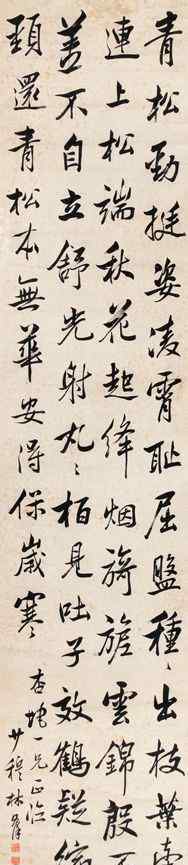 青松勁挺姿凌霄恥屈盤種〻出枝葉牽
連上松端秋花起絳烟旖旎雲錦殷不
羞不自立舒光射丸〻柏見吐子效鶴疑縮
頸還青松本無華安得保歲寒
一兄正
少穆林則徐